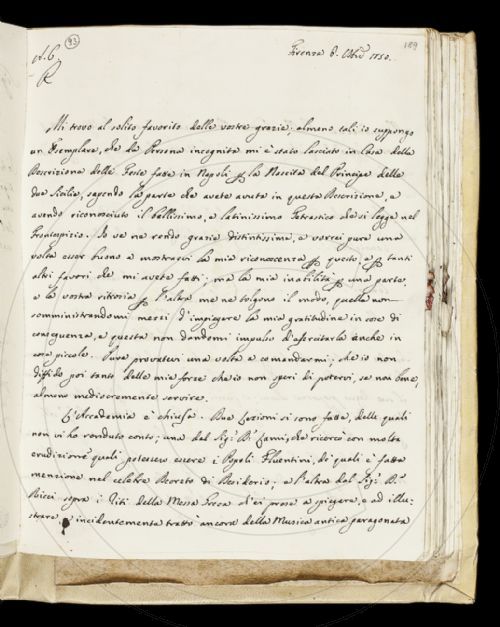 A. C.
93
R
Firenze 8. 1750.
189
Mi trovo al solito favorito delle vostre grazie; almeno tali io suppongo
un Esemplare, che da Persona incognita mi è stato lasciato in Casa della
Descrizione delle Feste fatte in Napoli per la Nascita del Principe delle
due Sicilie, sapendo la parte che avete avuto in questa Descrizione, e
avendo riconosciuto il bellissimo, e latinissimo Tetrastico che si legge nel
Frontespizio. Io ve ne rendo grazie distintissime, e vorrei pure una
volta esser buono a mostrarvi la mia riconoscenza per questo, e per tanti
altri favori che mi avete fatti; ma la mia inabilità per una parte,
e la vostra per l'altra me ne tolgono il modo, quella non
somministrandomi mezzi d'impiegare la mia gratitudine in cose di
conseguenza, e questa non dandomi impulso d'esercitarla anche in
cose piccole. Pure provatevi una volta a comandarmi; che io non
diffido poi tanto delle mie forze che io non speri di potervi, se non bene,
almeno mediocremente servire.
L'Accademia è chiusa. Due Lezioni si sono fatte, delle quali
non vi ho renduto conto; una dal Sig.r D.r Lami, che ricercò con molta
erudizione quali potessero essere i Popoli Fluentini, de' quali è fatta
menzione nel celebre Decreto di Desiderio; e l'altra dal Sig.r D.r
Ricci sopra i Riti della Messa Greca ch'ei prese a spiegare, e ad illu-
strare e incidentemente tratto ancora della Musica antica paragonata